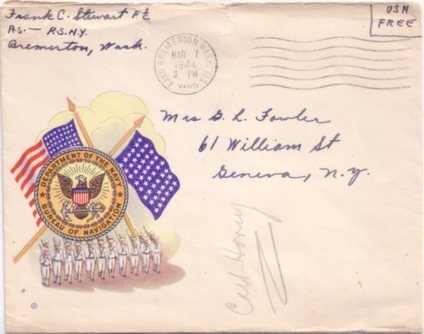 Frank C. Stewart
R.S. — P.S.N.Y.
Bremerton, Wash.
USN
FREE
BREMERTON, WASH.
MAR 7
1944
3 PM
Mrs G. L. Fowler
61 William St
Geneva, N.Y.
DEPARTMENT OF THE NAVY
BUREAU OF NAVIGATION
©